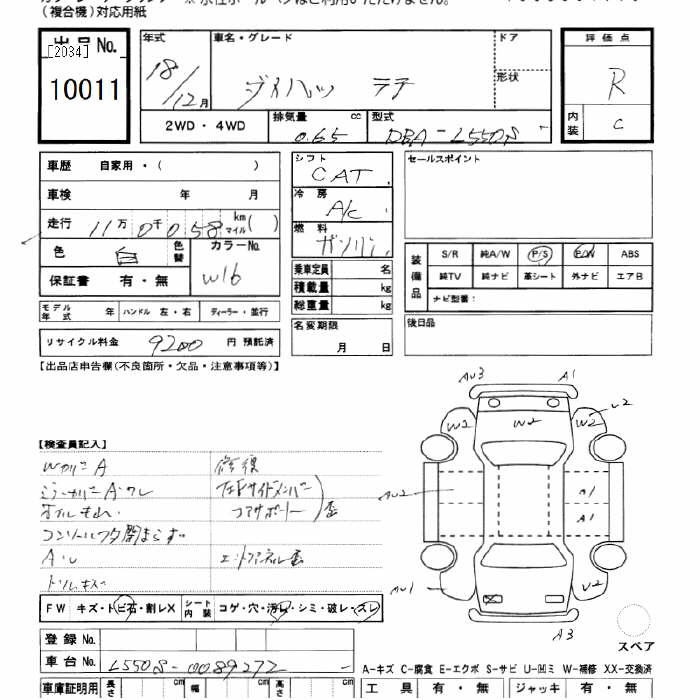 （複合機）対応用紙
出品 No.
[2034]
10011
年式
18/12月
車名・グレード
ダイハツ ラテ
ドア
形状
評価点
R
内装
C
2WD・4WD
排気量 cc
0.65
型式
DBA-L550S
車歴 自家用・（ ）
車検 年 月
走行 11万0千058 km マイル( )
色 白 色替
カラーNo.
W16
保証書 有・無
モデル年式 年 ハンドル 左・右 ディーラー・並行
リサイクル料金 9200 円 預託済
シフト
CAT
冷房
A/C
燃料
ガソリン
乗車定員 名
積載量 kg
総重量 kg
名変期限
月 日
セールスポイント
装備品
S/R 純A/W P/S P/W ABS
純TV 純ナビ 革シート 外ナビ エアB
ナビ型番：
後日品
【出品店申告欄（不良箇所・欠品・注意事項等）】
【検査員記入】
Wカバー A
修復
コンソールフタ閉まらず
コアサポート 歪
AU3 A1
W2 W2 W2 U2
AU2
A1
AU1 U2
A3
スペア
FW キズ・トビ石・割レX シート内装 コゲ・穴・汚レ・シミ・破レ・スレ
登録 No.
車台 No. L550S-0089272
車庫証明用 長さ cm 幅 cm 高さ cm
A-キズ C-腐食 E-エクボ S-サビ U-凹ミ W-補修 XX-交換済
工具 有・無 ジャッキ 有・無